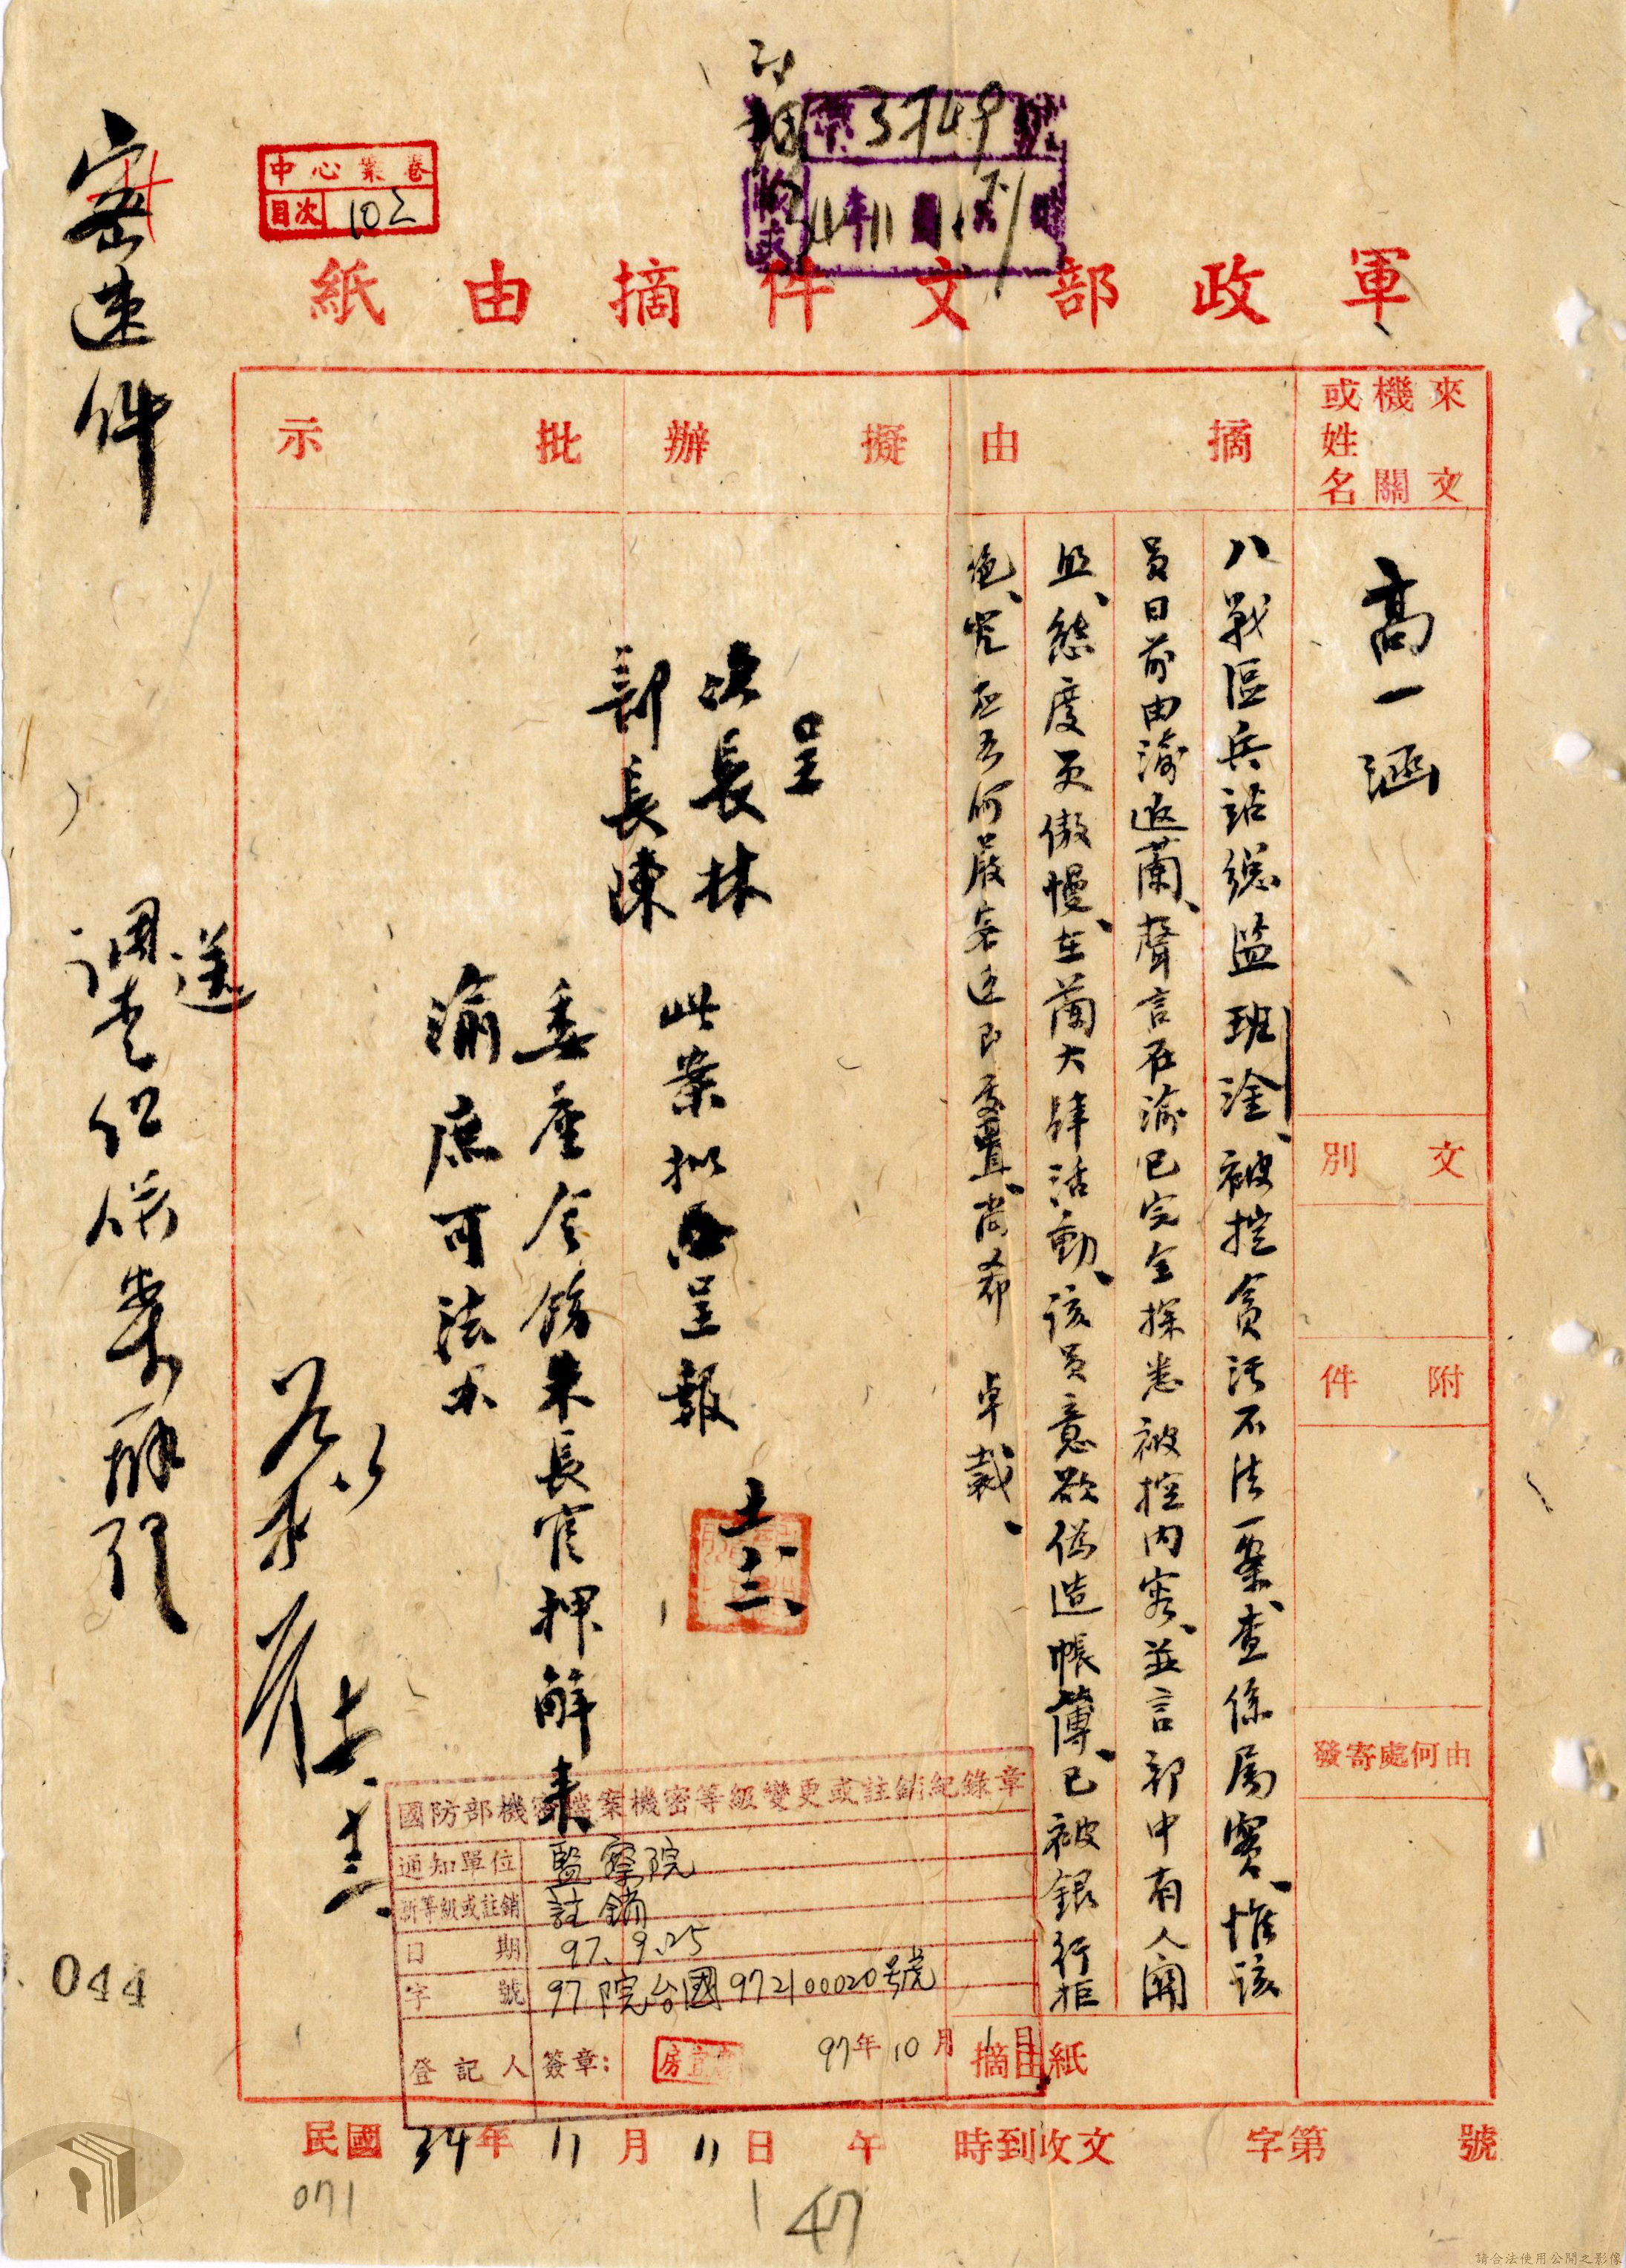 密速件
中心業卷
目次 103
第3749號
軍政部文件摘由紙
來文機關或姓名
摘由
擬辦
批示
高一涵
文別
附件
由何處寄發
八戰區兵站總监班淦、被控貪污不法一案、查係屬實、惟該
員日前由渝返蘭、聲言在渝已完全探悉被控内容、並言部中有人関
照、態度更傲慢、在蘭大肆活動、該員意欲偽造帳薄、已被銀行拒
絕、究应如何嚴密迅即處置、尚希 卓裁、
呈
次長林
部長陳
此案拟函呈報
委座令飭朱長官押解來
渝庶可法办
十一、十三
國防部機密檔案機密等級變更或註銷紀錄章
通知單位 監察院
新等級或註銷 註銷
日期 97.9.25
字號 97院台國972100020號
登記人 簽章：
97年10月1日
摘由紙
送
調查組併案辦
044
民國34年11月11日午時到收文 字第 號
071
47
請合法使用公開之影像